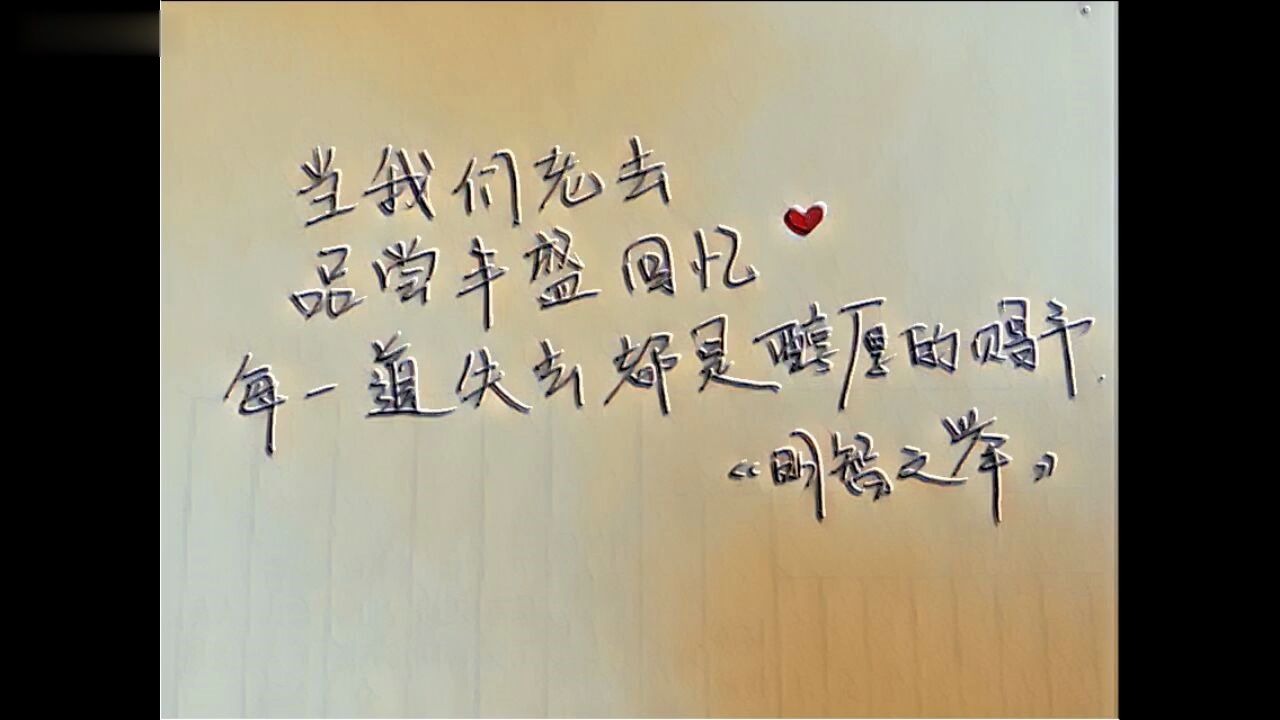 当我们老去
品尝丰盛回忆
每一道失去都是醇厚的赐予.
《明智之举》